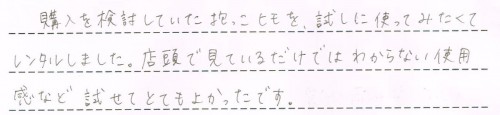 購入を検討していた抱っこヒモを、試しに使ってみたくて
レンタルしました。店頭で見ているだけではわからない使用
感など試せてとてもよかったです。